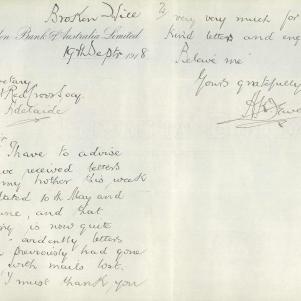 Broken Hill
Bank of Australia Limited
19th Sept 1918
Red Cross Socy
Adelaide
I have to advise
received letters
my mother this week
dated 10th May and
and that
is now quite
letters
previously had gone
with mails lost.
I must thank you
very very much for
kind letters and
Believe me
Yours gratefully